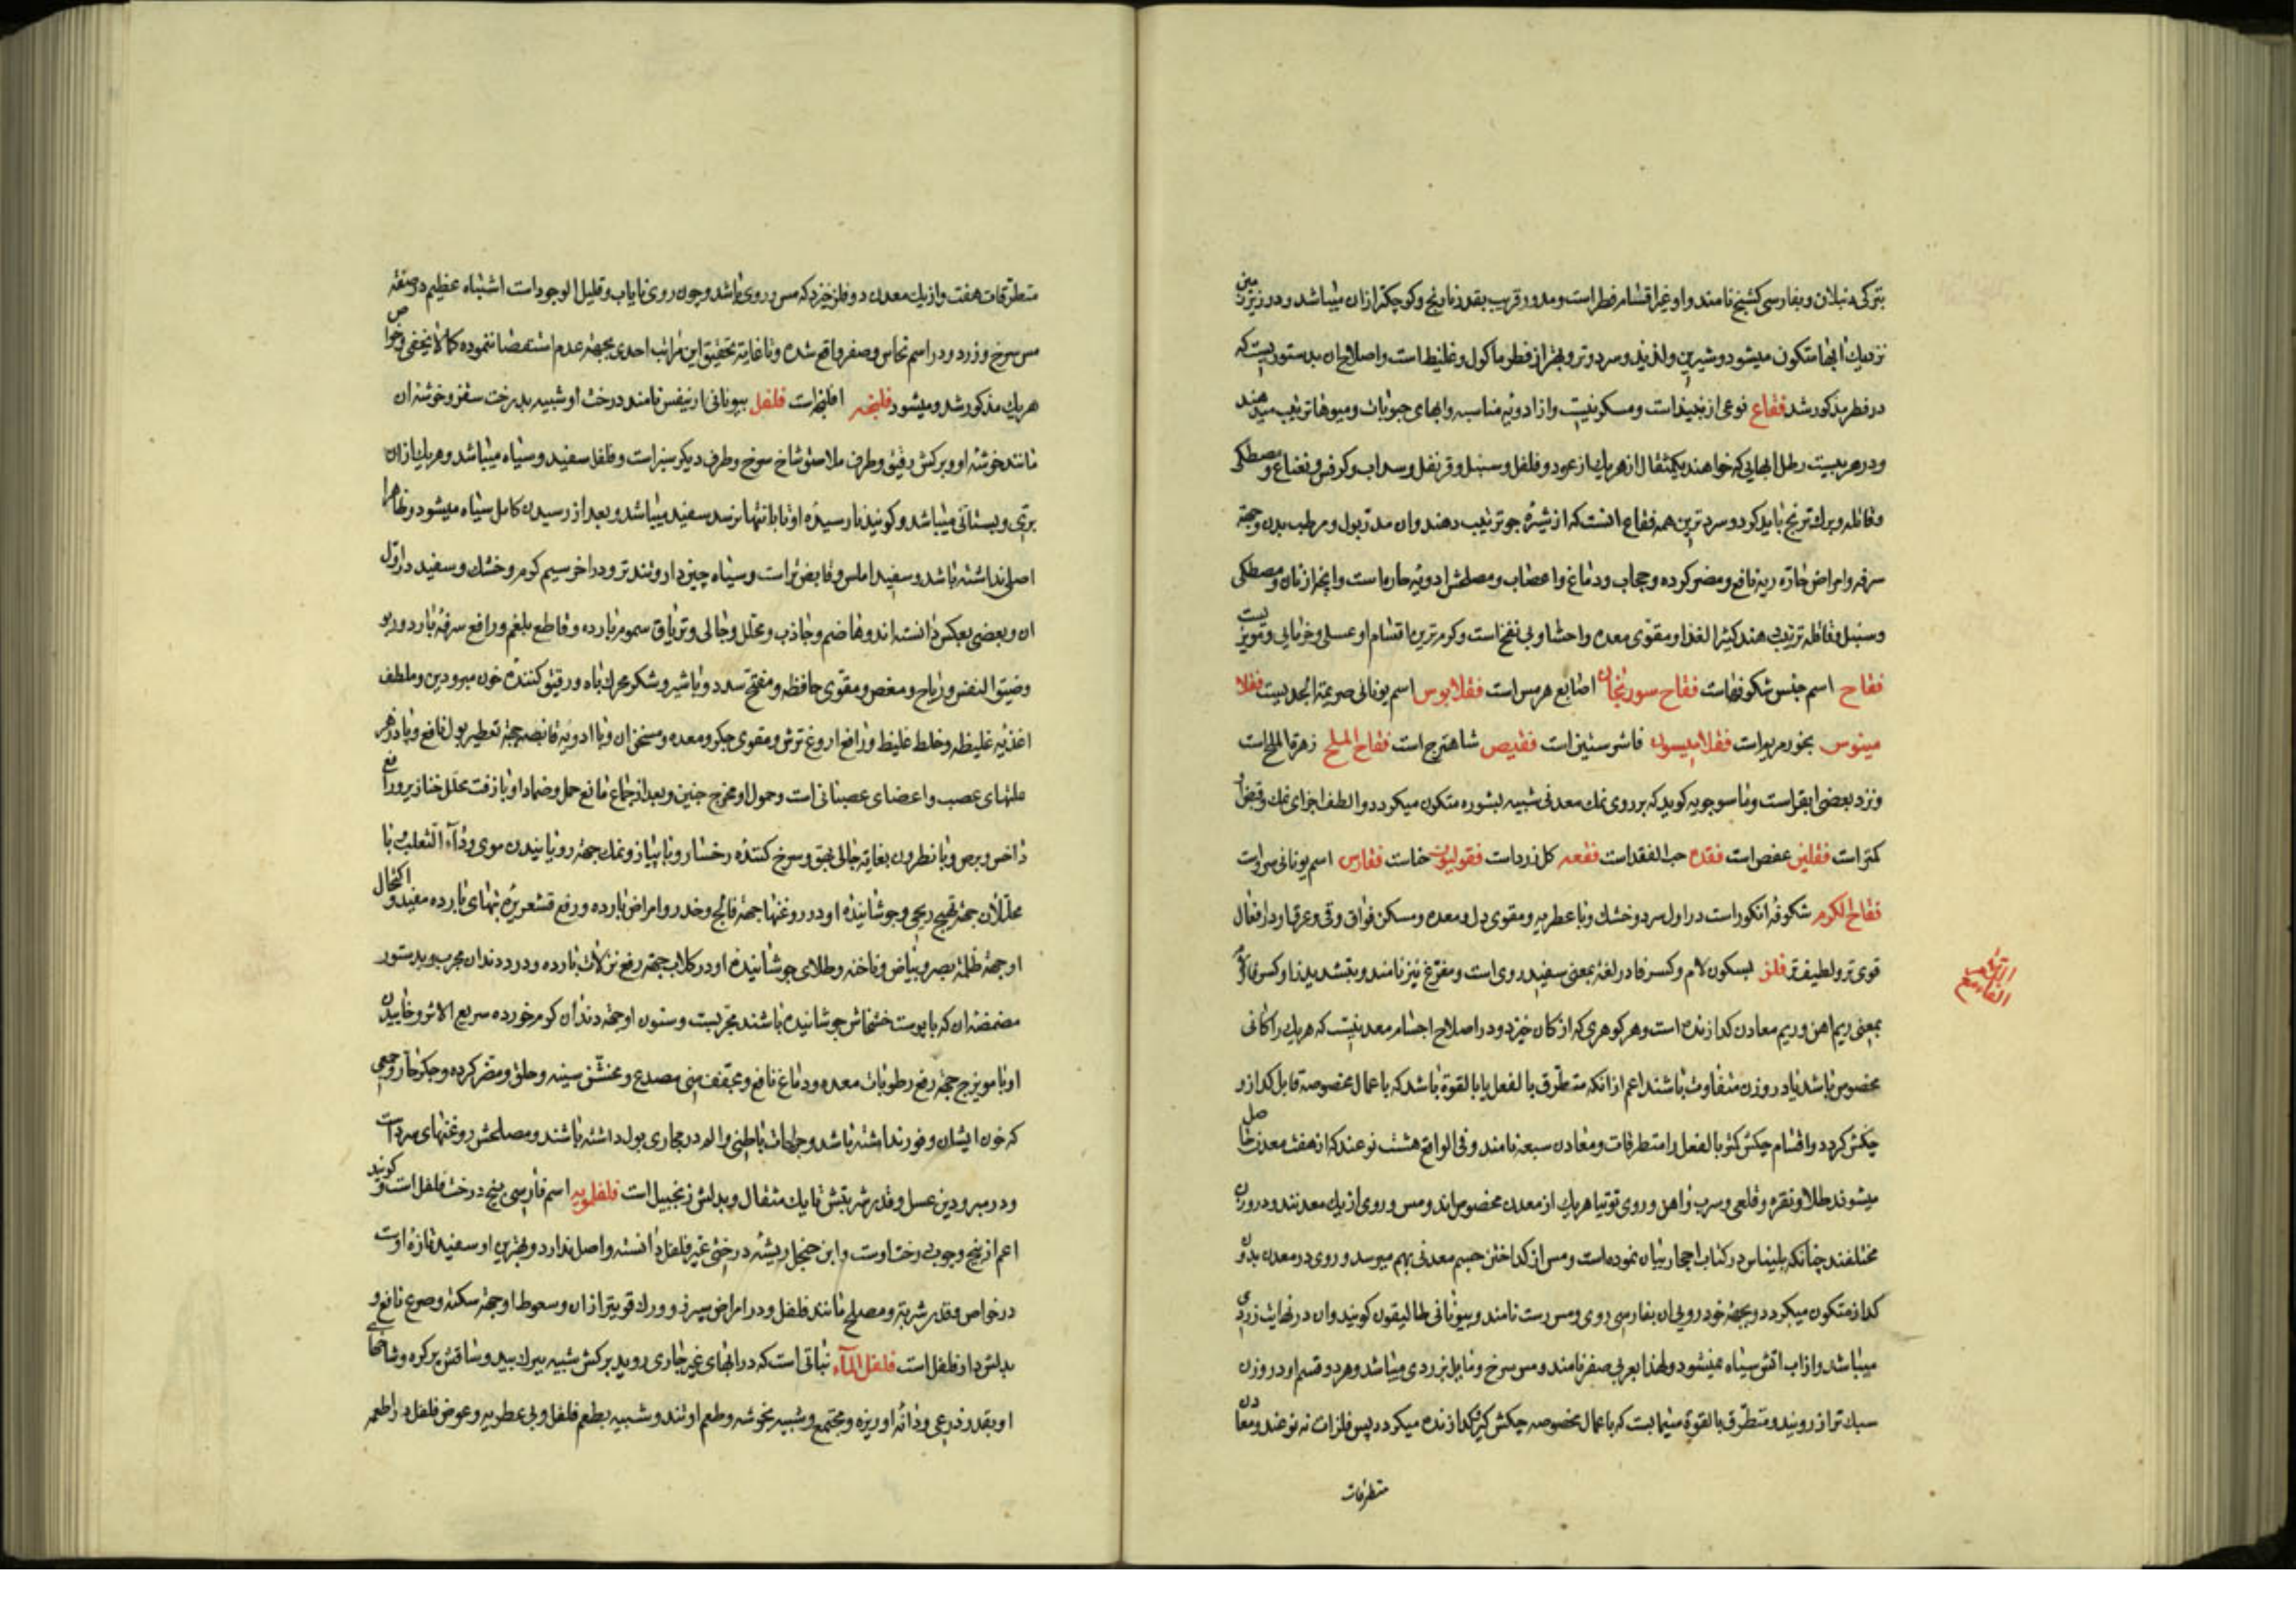 بترکی دنبلان و بفارسی کشنج نامند و او غیر اقسام فطر است و مدور قریب بقدر نارنج و کوچکتر ازان میباشد و در زیر زمین
نزدیک آبها متکون میشود و شیرین و لذیذ و سرد و تر و بهتر از فطر ماکول و غلیظ است و اصلاح آن بدستوریست که
در فطر مذکور شد فقاع نوعی از نبیذ است و مسکر نیست و از ادویه مناسبه و آبهای حبوبات و میوها ترتیب میدهند
و در هر بیست رطل آبهایی که خواهند یکمثقال از هر یک از عود و فلفل و سنبل و قرنفل و سداب و کرفس و نعناع و مصطکی
و قاقله و برک ترنج باید کرد و سردترین همه فقاع آنست که از شیره جو ترتیب دهند و آن مدر بول و مرطب بدن و جهة
سرفه و امراض حاره ریه نافع و مضر کرده و حجاب و دماغ و اعصاب و مصلحش ادویه حاره است و آنچه از نان و مصطکی
و سنبل و قاقله ترتیب دهند کثیر الغذا و مقوی معده و احشا و بی نفخ است و کرم ترین اقسام او عسلی و خرمایی و مویزیست
فقاح اسم جنس شکوفهاست فقاح سورنجان اصابع هرمس است فقلابوس اسم یونانی صریمة الجدیست فقلا
مینوس بخور مریم است فقلامیسون فاشرستین است فقیص شاهترج است فقاح الملح زهرة الملح است
و نزد بعضی ابقر است و ماسرجویه کوید که بر روی نمک معدنی شبیه بشوره متکون میکردد و الطف اجزای نمک و قبض او
کمتر است فقلین عفص است فقد حب الفقد است فقعه کل زرد است فقولیون حناست فقارس اسم یونانی سرو است
فقاح الکرم شکوفه انکور است در اول سرد و خشک و با عطریه و مقوی دل و معده و مسکن فواق و قی و عرقها و در افعال
قوی تر و لطیف تر فلز بسکون لام و کسر فا در لغة بمعنی سفیدروی است و مفرغ نیز نامند و بتشدید زا و کسر فا و لام
بمعنی ریم آهن و ریم معادن کدازنده است و هر کوهری که از کان خیزد و در اصطلاح اجسام معدنیست که هر یک را کانی
مخصوص باشد یا در وزن متفاوت باشند اعم از آنکه متطرق بالفعل یا بالقوة باشد که باعمال مخصوصه قابل کداز و
چکش کردد و اقسام چکش کش بالفعل را متطرقات و معادن سبعه نامند و فی الواقع هشت نوعند که از هفت معدن حاصل
میشوند طلا و نقره و قلعی و سرب و آهن و روی توتیا هر یک از معدن مخصوص اند و مس و روی از یک معدنند و در وزن
مختلفند چنانکه بلیناس در کتاب احجار بیان نموده است و مس از کداختن جسم معدنی بهم میرسد و روی در معدن بدون
کداز متکون میکردد و بجهة خودرویی آن بفارسی روی و مس رست نامند و بیونانی طالیقون کویند و آن در نهایت زردی
میباشد و از آب آتش سیاه نمیشود و لهذا بعربی صفر نامند و مس سرخ و مایل بزردی میباشد و هر دو قسم او در وزن
سبک تر از رویند و متطرق بالقوة سیمابست که باعمال مخصوصه چکش کیر و کدازنده میکردد پس فلزات نه نوعند و معادن
متطرقات
التراب
الفاء مع
متطرقات هفت و از یک معدن دو فلز خیزد که مس و روی باشد و چون روی نایاب و قلیل الوجود است اشتباه عظیم در صفة
مس سرخ و زرد و در اسم نحاس و صفر واقع شده و تا غایة تحقیق این مراتب احدی بجهة عدم استقصا ننموده کما لا یخفی و خواص
هر یک مذکور شد و میشود فلنجه افلنجه است فلفل بیونانی ارنیفس نامند درخت او شبیه بدرخت سقز و خوشه آن
مانند خوشه او و برکش رقیق و طرف ملاصق شاخ سرخ و طرف دیکر سبز است و فلفل سفید و سیاه میباشد و هر یک ازان
بری و بستانی میباشد و کویند نارسیده او تا بانتها نرسد سفید میباشد و بعد از رسیدن کامل سیاه میشود و ظاهرا
اصلی نداشته باشد و سفید املس و قابض تر است و سیاه چین دار و تندتر و در آخر سیم کرم و خشک و سفید در اول
آن و بعضی بعکس دانسته اند و هاضم و جاذب و محلل و جالی و تریاق سموم بارده و قاطع بلغم و رافع سرفه بارد و ربو
و ضیق النفس و ریاح و مغص و مقوی حافظه و مفتح سدد و با شیر و شکر محرک باه و رقیق کننده خون مبرودین و ملطف
اغذیه غلیظه و خلط غلیظ و رافع آروغ ترش و مقوی جکر و معده و مسخن آن و با ادویه قابضه جهة تقطیر بول نافع و پادزهر
علتهای عصب و اعضای عصبانی است و حمول او مخرج جنین و بعد از جماع مانع حمل و ضماد او با زفت محلل خنازیر و رافع
داخس و برص و با نطرون بغایة جالی بهق و سرخ کننده رخسار و با پیاز و نمک جهة رویانیدن موی و داء الثعلب با
محللات جهة تهیج ریحی و جوشانیده او در روغنها جهة فالج و خدر و امراض بارده و رفع قشعریره تبهای بارده مفید و اکتحال
او جهة ظلمة بصر و بیاض و ناخنه و طلای جوشانیده او در کلاب جهة رفع نزلات بارده و درد دندان مجرب و بدستور
مضمضه آن که با پوست خشخاش جوشانیده باشند مجربست و سنون او جهة دندان کرم خورده سریع الاثر و خاییدن
او با مویزج جهة رفع رطوبات معده و دماغ نافع و مجفف منی مصدع و مخشن سینه و حلق و مضر کرده و جکر حار و جمعی
که خون ایشان وفور نداشته باشد و جراحات باطنی و الم در مجاری بول داشته باشند و مصلحش روغنهای سرد است
و در مبرودین عسل و قدر شربتش تا یک مثقال و بدلش زنجبیل است فلفلمویه اسم فارسی بیخ درخت فلفل است و کویند
اعم از بیخ و چوب درخت اوست و ابن جلجل ریشه درختی غیر فلفل دانسته و اصل ندارد و بهترین او سفید تازه اوست
در خواص و قدر شربة و مصلح مانند فلفل و در امراض سپرز و ورک قویتر ازان و سعوط او جهة سکته و صرع نافع و
بدلش دارفلفل است فلفل الماء نباتی است که در آبهای غیر جاری روید برکش شبیه ببرک بید و ساقش پرکره و شاخهای
او بقدر ذرعی و دانه او ریزه و مجتمع و شبیه بخوشه و طعم او تند و شبیه بطعم فلفل و بی عطریه و عوض فلفل در اطعمه